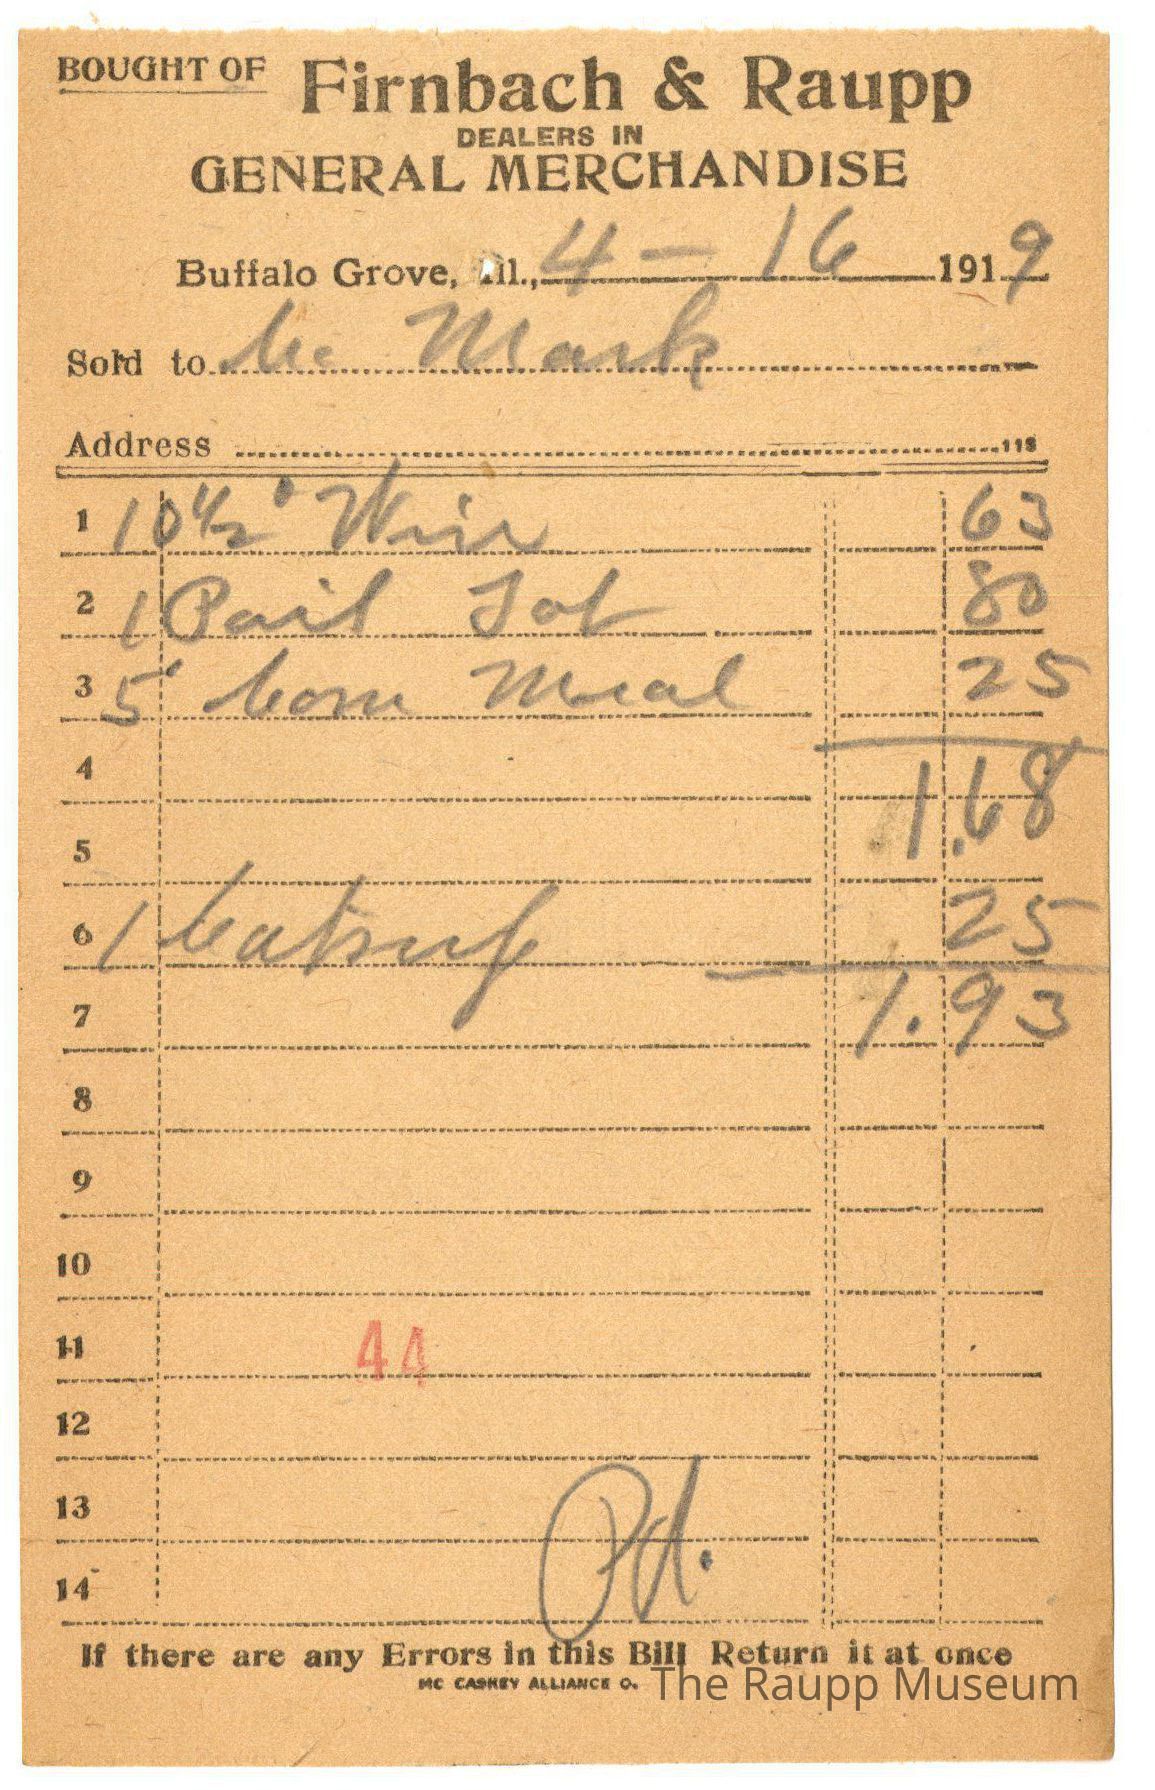 BOUGHT OF Firnbach & Raupp
DEALERS IN
GENERAL MERCHANDISE
Buffalo Grove, Ill., 4 - 16 1919
Sold to Mark
Address 118
1 10 1/2 Wire 63
2 1 Pail 80
3 5 Corn Meal 25
4 1.68
5
6 1 Catsup 25
7 1.93
8
9
10
11 44
12
13
14 Pd.
If there are any Errors in this Bill Return it at once
MC CASKEY ALLIANCE O.
The Raupp Museum